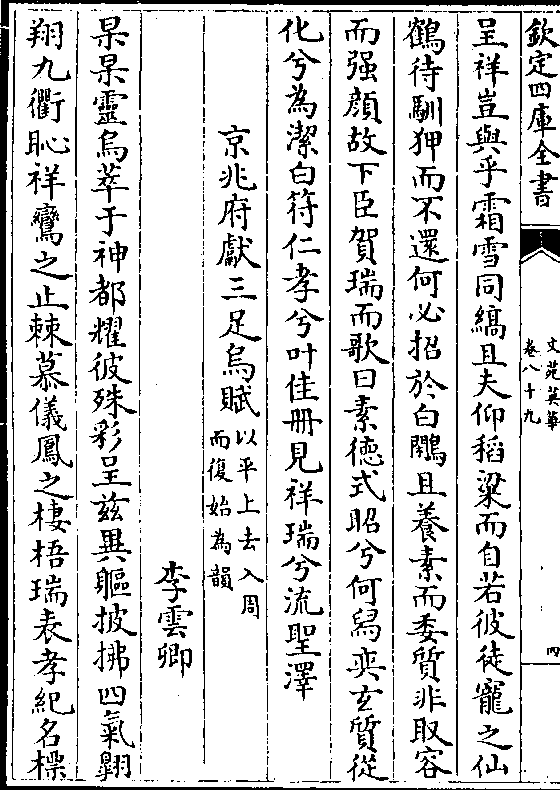 欽定四庫全書
文苑英華
卷八十九
四
呈祥豈與乎霜雪同縞且夫仰稻粱而自若彼徒寵之仙
鶴待馴狎而不還何必招於白鷳且養素而委質非取容
而强顔故下臣賀瑞而歌曰素德式昭兮何舄奕玄質從
化兮為潔白符仁孝兮叶佳册見祥瑞兮流聖澤
京兆府獻三足烏賦以平上去入周
而復始為韻
李雲卿
杲杲靈烏萃于神都耀彼殊彩呈兹異軀披拂四氣翺
翔九衢恥祥鸞之止棘慕儀鳳之棲梧瑞表孝紀名標